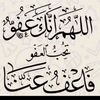 اللَّهُمَّ إِنَّكَ عَفُوٌّ
تُحِبُّ الْعَفْوَ
فَاعْفُ عَنَّا